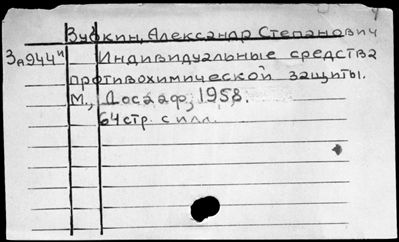 Зубкин, Александр Степанович
За944и Индивидуальные средства
противохимической защиты.
М., Досааф, 1958.
64 стр. с илл.